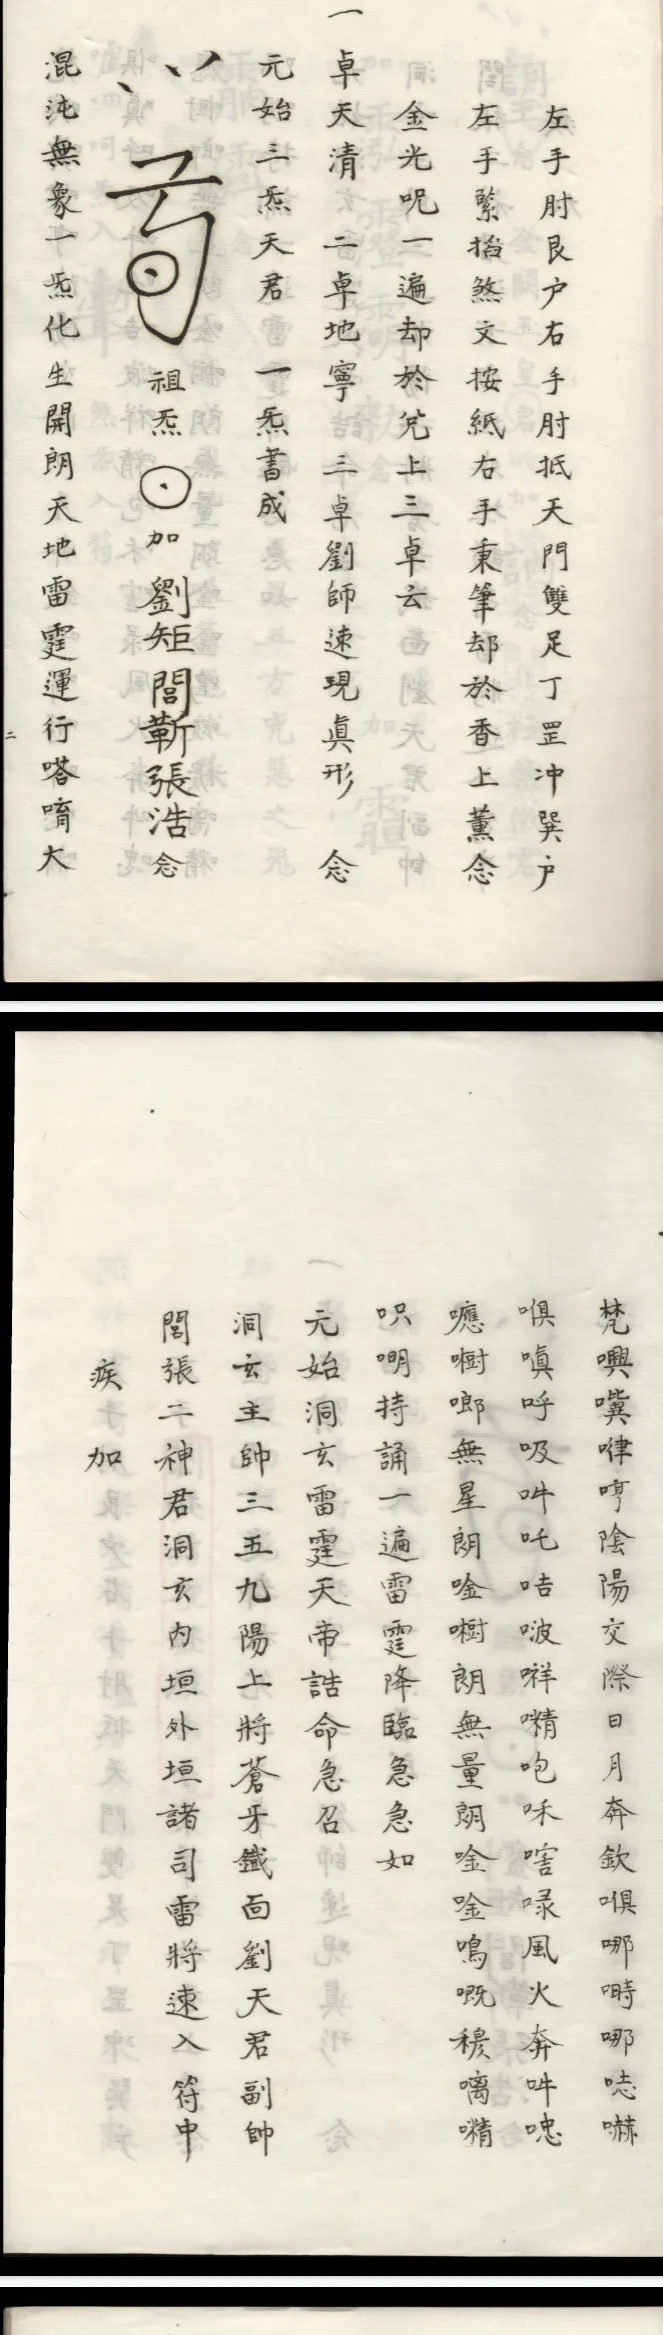 左手肘艮户右手肘抵天門雙足丁罡冲巽户
左手緊掐煞文按紙右手秉筆却於香上薰念
金光呪一遍却於兊上三卓云
一卓天清 二卓地寧 三卓劉師速現眞形 念
元始三炁天君 一炁書成
祖炁 加 劉矩閻靳張浩念
混沌無象一炁化生開朗天地雷霆運行嗒唷大
二
梵㘈㘍嘽哼陰陽交際日月奔欽㖽哪㗭哪㖻嚇
㖽嗔呼吸吽吒咭啵哶㗲咆咊嗐㖨風火奔吽唿
嚈嘝啷無星朗唫嘝朗無量朗唫唫鳴嘅穠嚆㗲
呮明持誦一遍雷霆降臨急急如
元始洞玄雷霆天帝誥命急召
洞玄主帥三五九陽上將蒼牙鐵面劉天君副帥
閻張二神君洞玄內垣外垣諸司雷將速入符中
疾 加